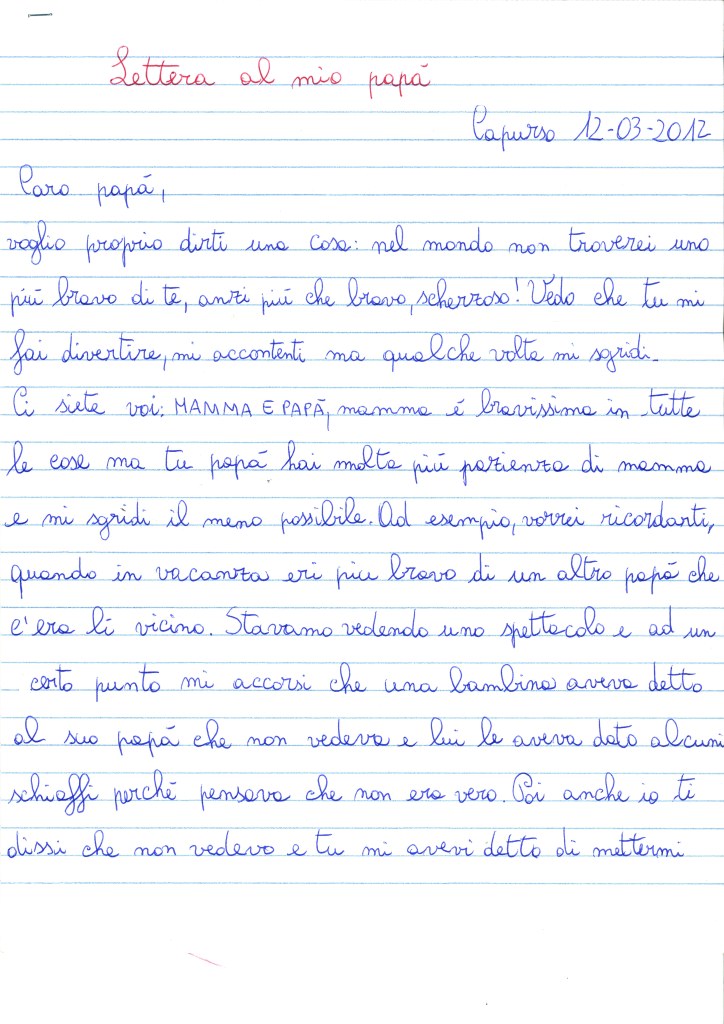 Lettera al mio papá
Capurso 12-03-2012
Caro papá,
voglio proprio dirti una cosa: nel mondo non troverei uno
piú bravo di te, anzi piú che bravo, scherzoso! Vedo che tu mi
fai divertire, mi accontenti ma qualche volta mi sgridi.
Ci siete voi: MAMMA E PAPÁ, mamma é bravissima in tutte
le cose ma tu papá hai molta piú pazienza di mamma
e mi sgridi il meno possibile. Ad esempio, vorrei ricordarti,
quando in vacanza eri piu bravo di un altro papá che
c'era lí vicino. Stavamo vedendo uno spettacolo e ad un
certo punto mi accorsi che una bambina aveva detto
al suo papá che non vedeva e lui le aveva dato alcuni
schiaffi perché pensava che non era vero. Poi anche io ti
dissi che non vedevo e tu mi avevi detto di mettermi